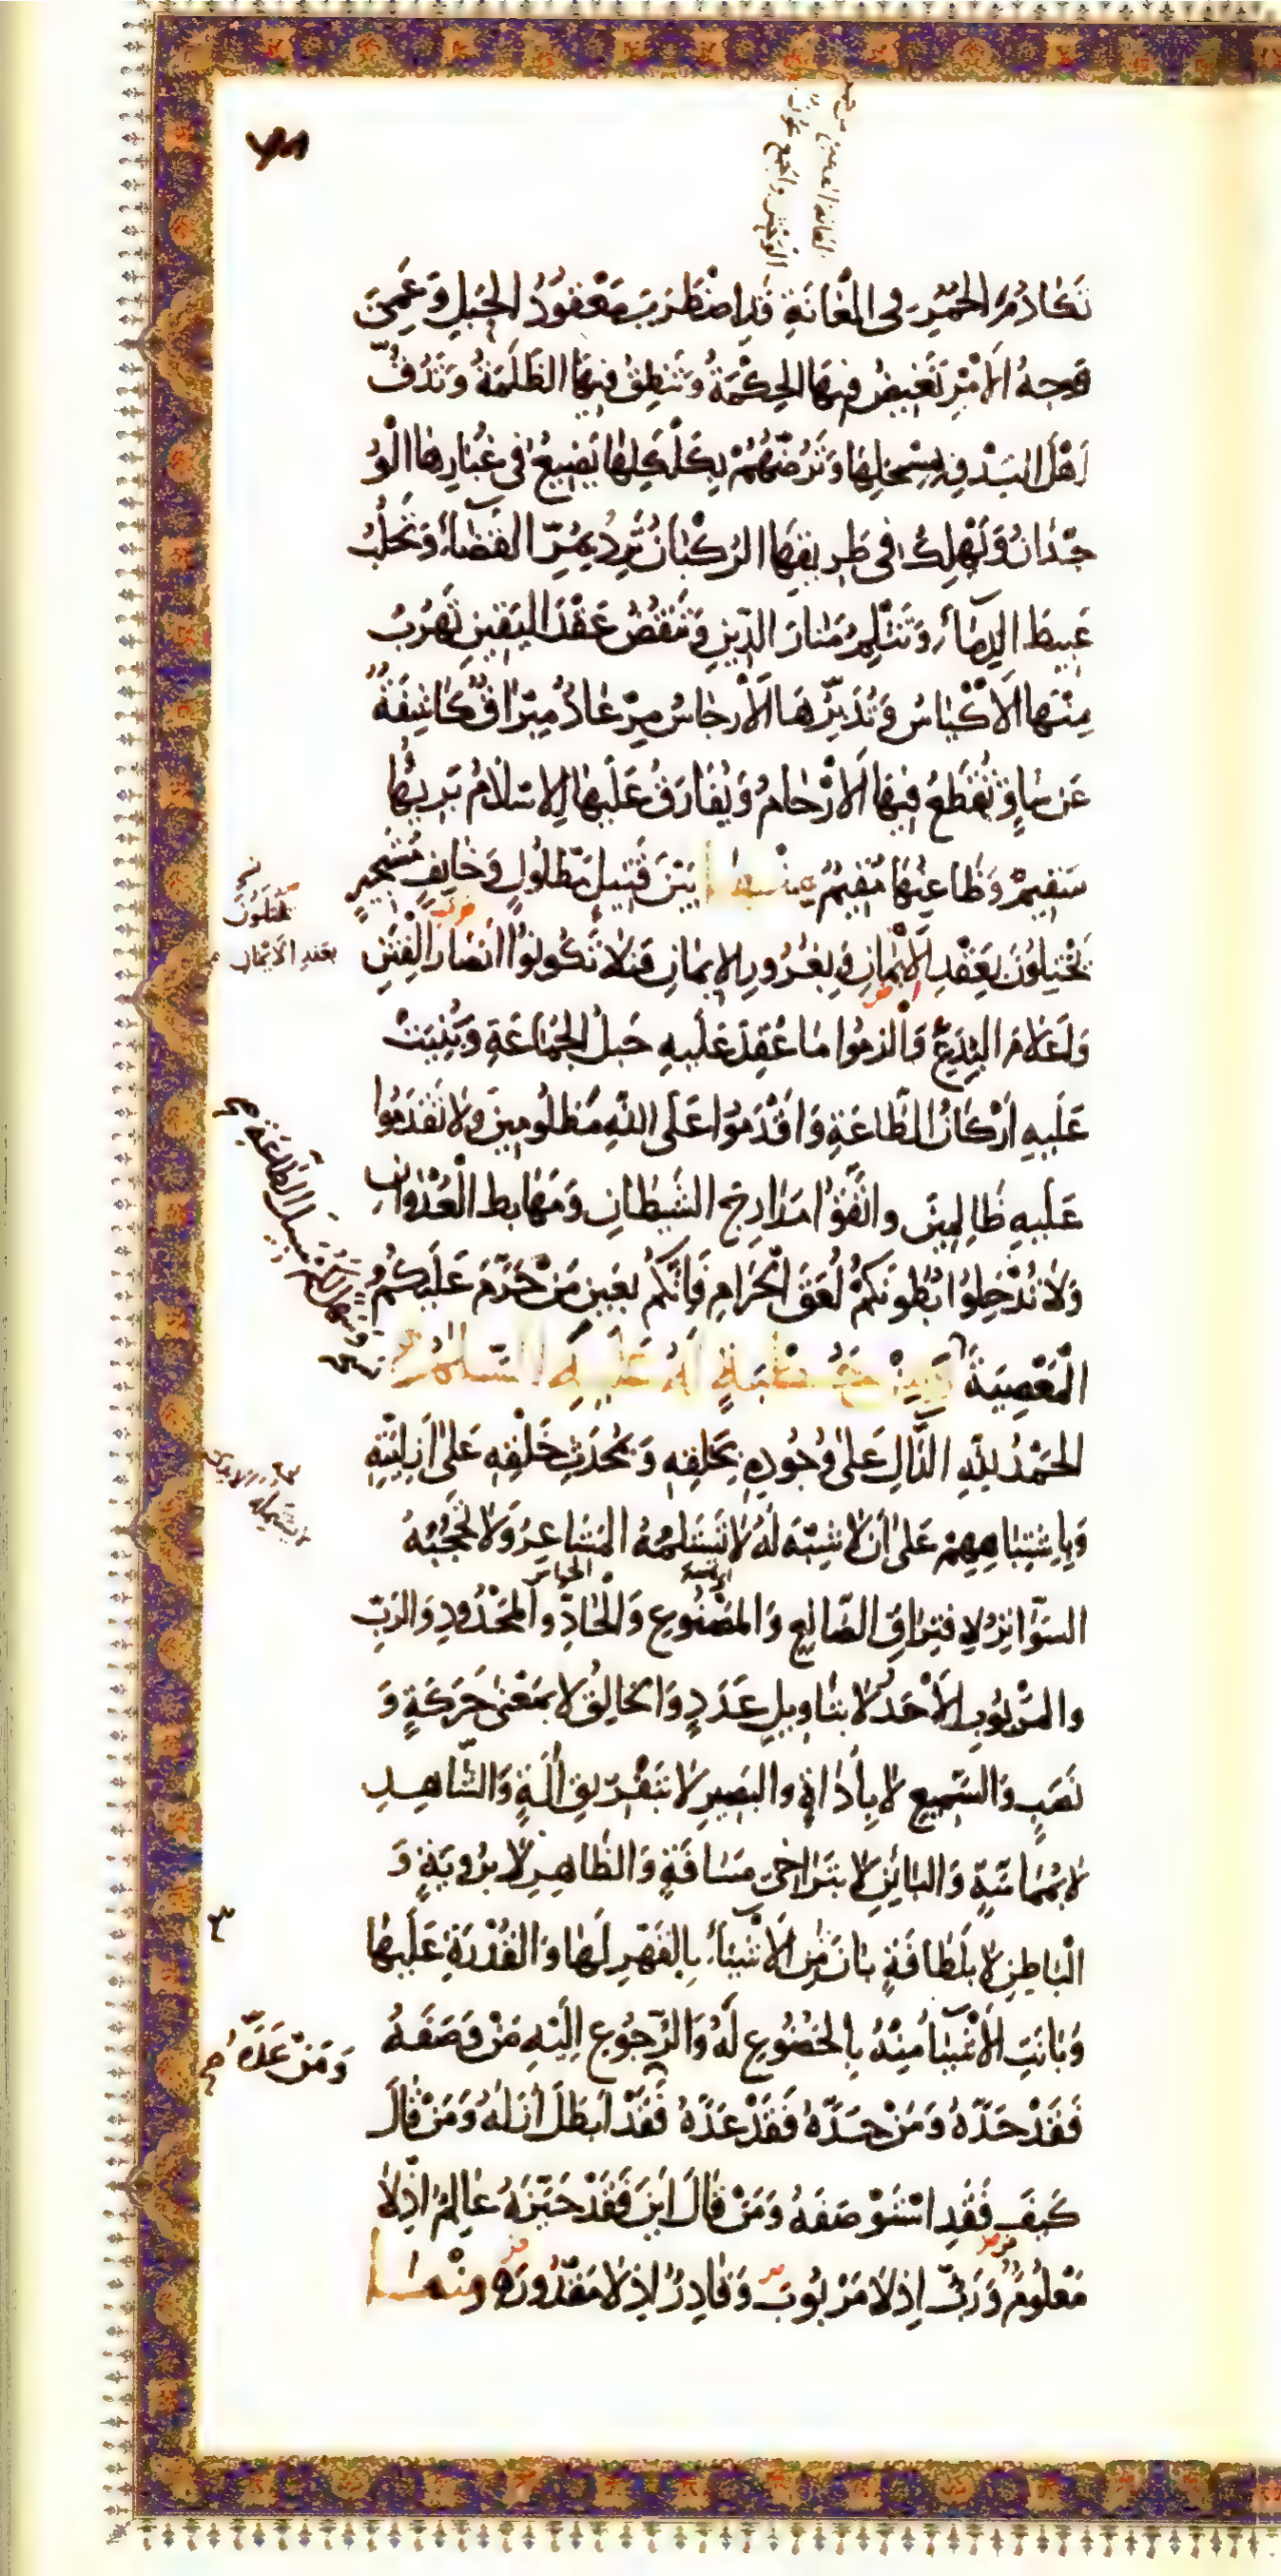 تَكَادُمَ الْحُمُرِ فِى الْعَانَةِ قَدِ اضْطَرَبَ مَعْقُودُ الْحَبْلِ وَعَمِىَ
وَجْهُ الْاَمْرِ تَغِيضُ فِيهَا الْحِكْمَةُ وَتَنْطِقُ فِيهَا الظَّلَمَةُ وَتَدُقُّ
اَهْلَ الْبَدْوِ بِمِسْحَلِهَا وَتَرُضُّهُمْ بِكَلْكَلِهَا يَضِيعُ فِى غُبَارِهَا الْوُ
حْدَانُ وَيَهْلِكُ فِى طَرِيقِهَا الرُّكْبَانُ تَرِدُ بِمُرِّ الْقَضَاءِ وَتَحْلُبُ
عَبِيطَ الدِّمَاءِ وَتَثْلِمُ مَنَارَ الدِّينِ وَتَنْقُضُ عَقْدَ الْيَقِينِ تَهْرُبُ
مِنْهَا الْاَكْيَاسُ وَتُدَبِّرُهَا الْاَرْجَاسُ مِرْعَادٌ مِبْرَاقٌ كَاشِفَةٌ
عَنْ سَاقٍ تُقْطَعُ فِيهَا الْاَرْحَامُ وَيُفَارَقُ عَلَيْهَا الْاِسْلَامُ بَرِيئُهَا
سَقِيمٌ وَظَاعِنُهَا مُقِيمٌ مِنْهَا بَيْنَ قَتِيلٍ مَطْلُولٍ وَخَايِفٍ مُسْتَجِيرٍ
يَخْتِلُونَ بِعَقْدِ الْاَيْمَانِ وَبِغُرُورِ الْاِيمَانِ فَلَا تَكُونُوا اَنْصَارَ الْفِتَنِ
وَاَعْلَامَ الْبِدَعِ وَالْزَمُوا مَا عُقِدَ عَلَيْهِ حَبْلُ الْجَمَاعَةِ وَبُنِيَتْ
عَلَيْهِ اَرْكَانُ الطَّاعَةِ وَاقْدَمُوا عَلَى اللّٰهِ مَظْلُومِينَ وَلَا تَقْدَمُوا
عَلَيْهِ ظَالِمِينَ وَاتَّقُوْا مَدَارِجَ الشَّيْطَانِ وَمَهَابِطَ الْعُدْوَانِ
وَلَا تُدْخِلُوا بُطُونَكُمْ لُعَقَ الْحَرَامِ فَاِنَّكُمْ بِعَيْنِ مَنْ حَرَّمَ عَلَيْكُمُ
الْمَعْصِيَةَ وَمِنْ خُطْبَةٍ لَهُ عَلَيْهِ السَّلَامُ
الْحَمْدُ لِلّٰهِ الدَّالِّ عَلَى وُجُودِهِ بِخَلْقِهِ وَبِمُحْدَثِ خَلْقِهِ عَلَى اَزَلِيَّتِهِ
وَبِاشْتِبَاهِهِمْ عَلَى اَنْ لَا شِبْهَ لَهُ لَا تَسْتَلِمُهُ الْمَشَاعِرُ وَلَا تَحْجُبُهُ
السَّوَاتِرُ لِافْتِرَاقِ الصَّانِعِ وَالْمَصْنُوعِ وَالْحَادِّ وَالْمَحْدُودِ وَالرَّبِّ
وَالْمَرْبُوبِ الْاَحَدُ لَا بِتَاوِيلِ عَدَدٍ وَالْخَالِقُ لَا بِمَعْنَى حَرَكَةٍ وَ
نَصَبٍ وَالسَّمِيعِ لَا بِاَدَاةٍ وَالْبَصِيرِ لَا بِتَفْرِيقِ اٰلَةٍ وَالشَّاهِدِ
لَا بِمُمَاسَّةٍ وَالْبَائِنِ لَا بِتَرَاخِى مَسَافَةٍ وَالظَّاهِرِ لَا بِرُويَةٍ وَ
الْبَاطِنِ لَا بِلَطَافَةٍ بَانَ مِنَ الْاَشْيَاءِ بِالْقَهْرِ لَهَا وَالْقُدْرَةِ عَلَيْهَا
وَبَانَتِ الْاَشْيَاءُ مِنْهُ بِالْخُضُوعِ لَهُ وَالرُّجُوعِ اِلَيْهِ مَنْ وَصَفَهُ
فَقَدْ حَدَّهُ وَمَنْ حَدَّهُ فَقَدْ عَدَّهُ فَقَدْ اَبْطَلَ اَزَلَهُ وَمَنْ قَالَ
كَيْفَ فَقَدِ اسْتَوْصَفَهُ وَمَنْ قَالَ اَيْنَ فَقَدْ حَيَّزَهُ عَالِمٌ اِذْ لَا
مَعْلُومٌ وَرَبٌّ اِذْ لَا مَرْبُوبٌ وَقَادِرٌ اِذْ لَا مَقْدُورٌ مِنْهَا
يَخْتِلُونَ
بعقد الايمان
وَمَنْ عَدَّهُ